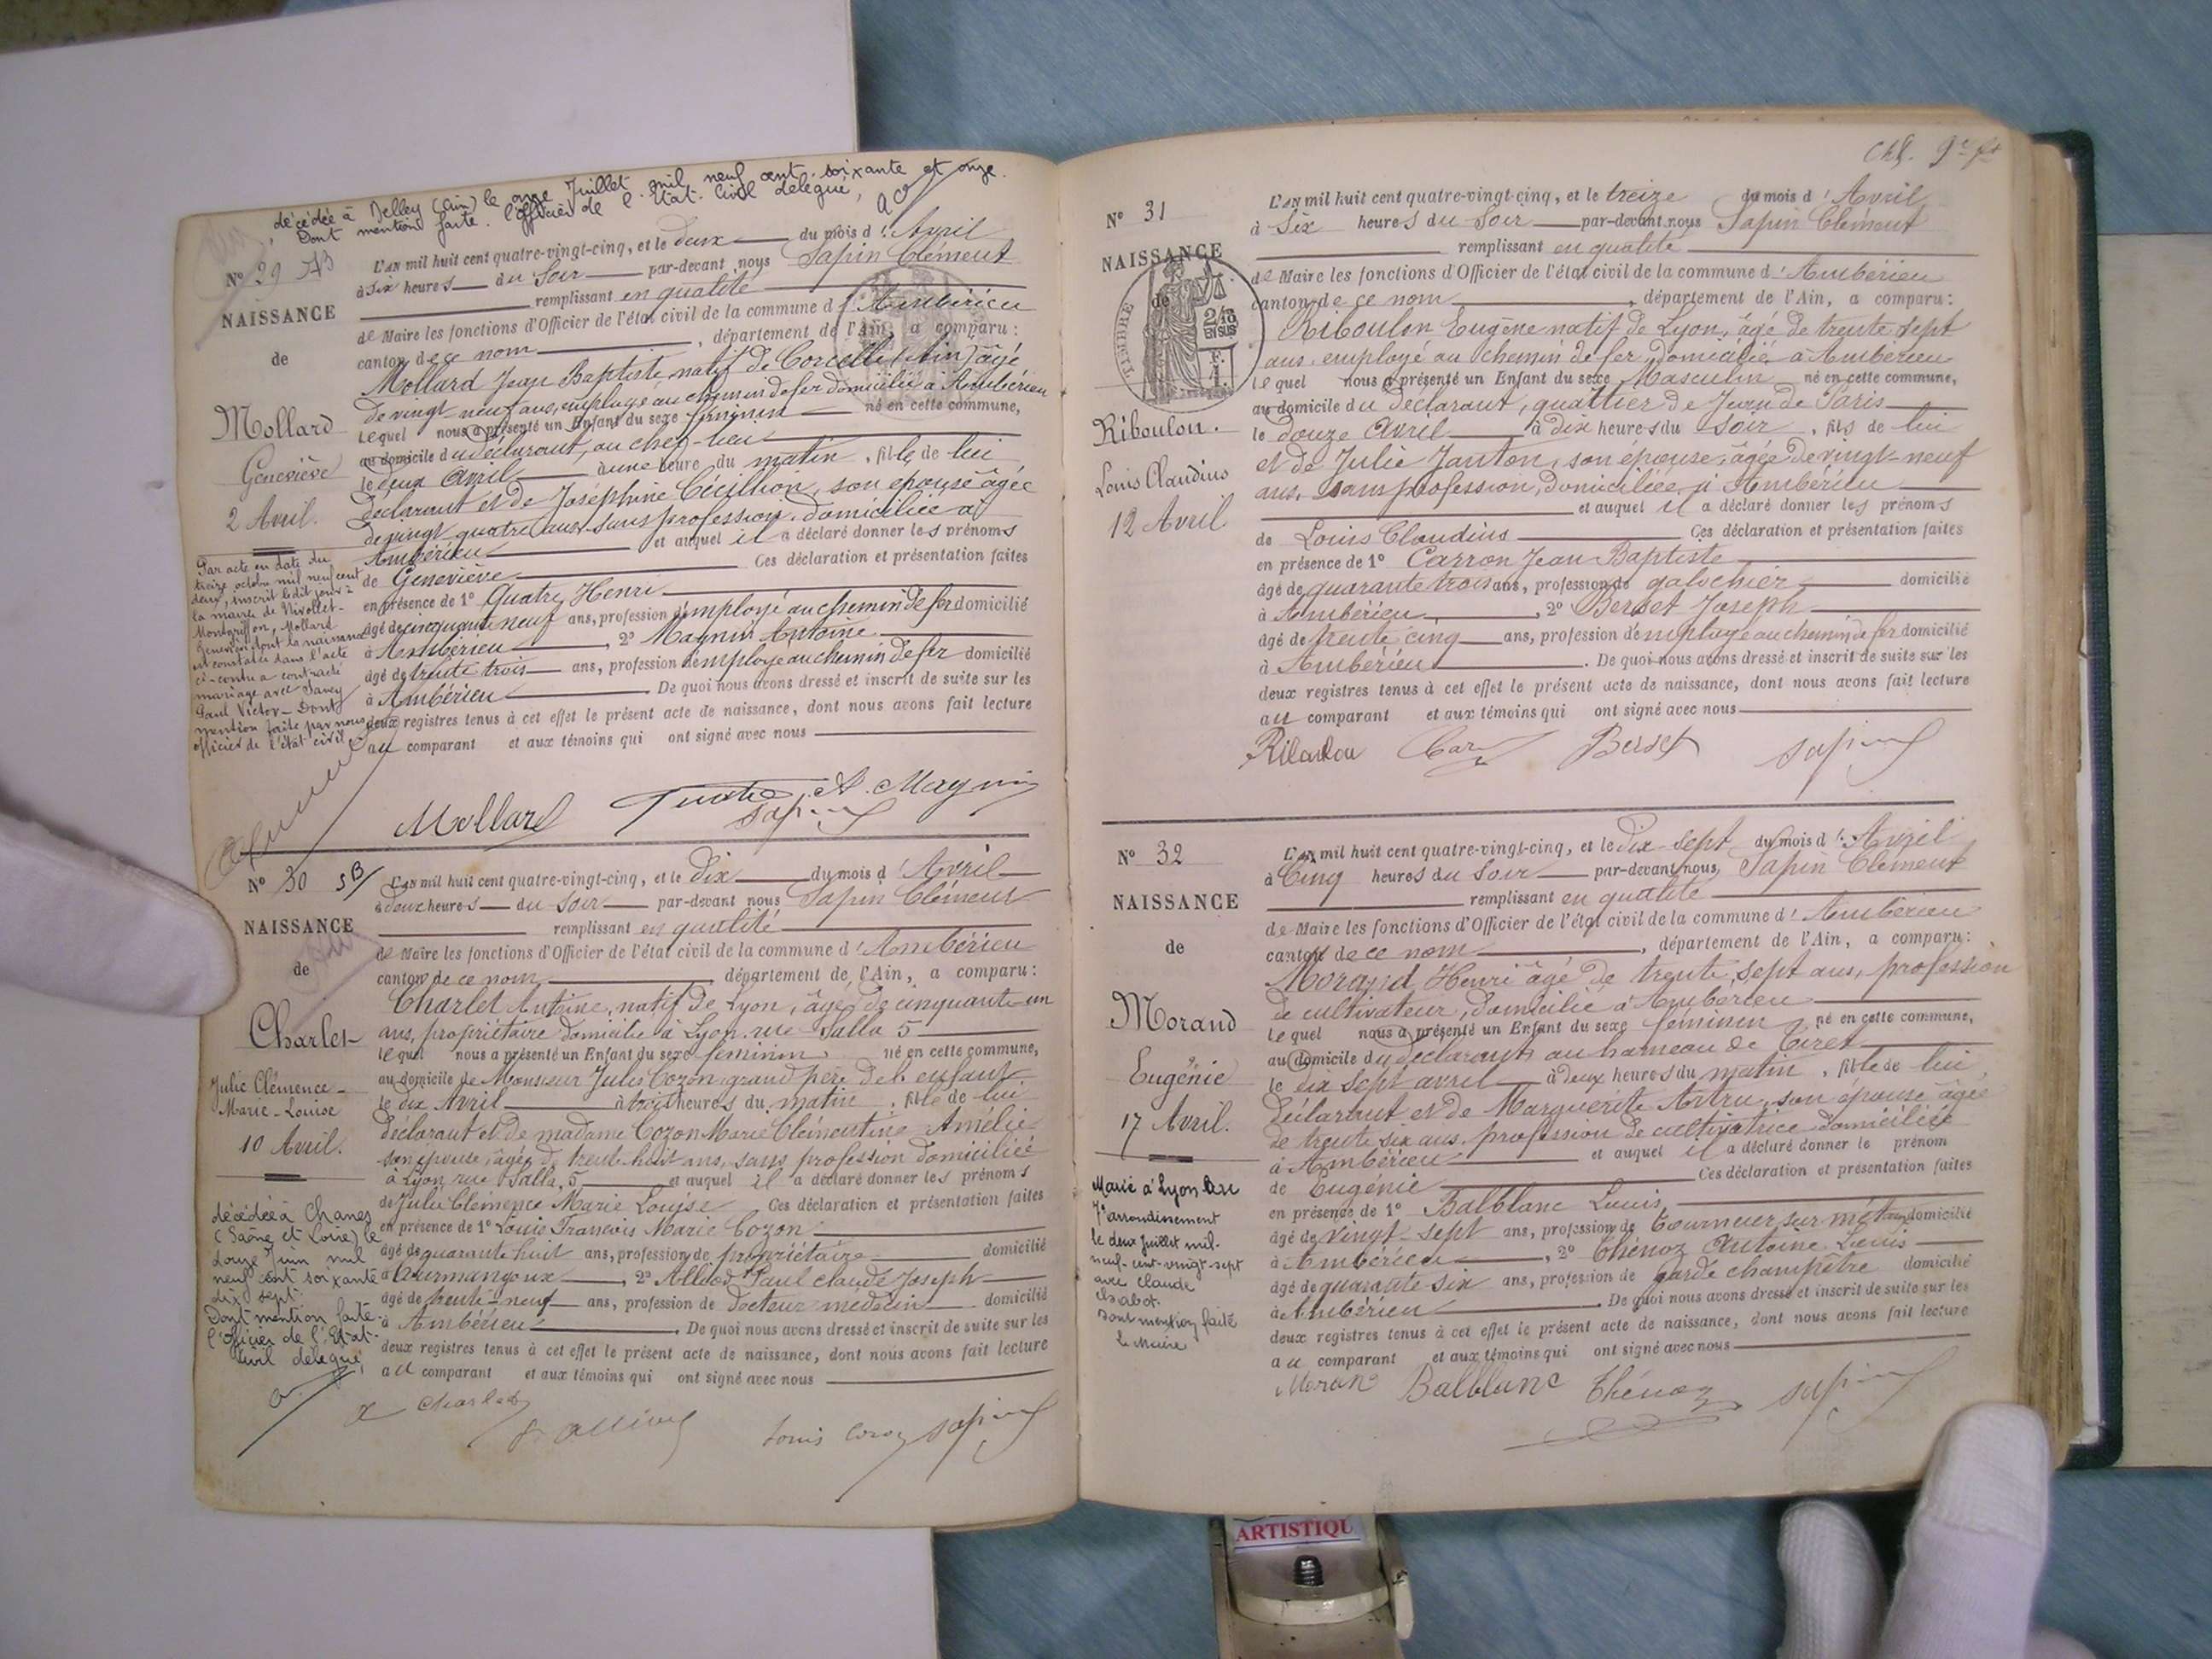 décédée à Belley (Ain) le onze Juillet mil neuf cent soixante et onze.
Dont mention faite. l'officier de l'Etat-Civil délégué,
N° 29
NAISSANCE
de
Mollard
Geneviève
2 Avril.
Par acte en date du
treize octobre mil neuf cent
deux, inscrit ledit jour à
la mairie de Nivollet-
Montgriffon, Mollard
Geneviève dont la naissance
est constatée dans l'acte
ci-contre a contracté
mariage avec Savey
Paul Victor - Dont
mention faite par nous
officier de l'état civil
L'an mil huit cent quatre-vingt-cinq, et le deux du mois d'Avril
à six heures du Soir par-devant nous Sapin Clément
remplissant en qualité
de Maire les fonctions d'Officier de l'état civil de la commune d'Ambérieu
canton de ce nom, département de l'Ain, a comparu:
Mollard Jean Baptiste natif de Corcelle (Ain) âgé
de vingt neuf ans, employé au chemin de fer domicilié à Ambérieu
lequel nous a présenté un Enfant du sexe féminin né en cette commune,
au domicile du déclarant, au chef-lieu
le deux Avril à une heure du matin, fille de lui
déclarant et de Joséphine Cécillion, son épouse âgée
de vingt quatre ans, sans profession, domiciliée à
Ambérieu et auquel il a déclaré donner les prénoms
de Geneviève Ces déclaration et présentation faites
en présence de 1° Quatre Henri
âgé de cinquante neuf ans, profession d'employé au chemin de fer domicilié
à Ambérieu, 2° Magnin Antoine
âgé de trente trois ans, profession d'employé au chemin de fer domicilié
à Ambérieu. De quoi nous avons dressé et inscrit de suite sur les
deux registres tenus à cet effet le présent acte de naissance, dont nous avons fait lecture
au comparant et aux témoins qui ont signé avec nous
Mollard Quatre A. Magnin
Sapin
N° 30
NAISSANCE
de
Charlet
Julie Clémence-
Marie-Louise
10 Avril.
décédée à Chanes
(Saône et Loire) le
douze Juin mil
neuf cent soixante
dix sept.
Dont mention faite.
l'Officier de l'Etat-
Civil délégué,
L'an mil huit cent quatre-vingt-cinq, et le dix du mois d'Avril
à deux heures du Soir par-devant nous Sapin Clément
remplissant en qualité
de Maire les fonctions d'Officier de l'état civil de la commune d'Ambérieu
canton de ce nom département de l'Ain, a comparu:
Charlet Antoine, natif de Lyon, âgé de cinquante un
ans, propriétaire domicilié à Lyon, rue Salla 5
lequel nous a présenté un Enfant du sexe féminin né en cette commune,
au domicile de Monsieur Jules Cozon grand père de l'enfant
le dix Avril à trois heures du matin, fille de lui
déclarant et de madame Cozon Marie Clémentine Amélie
son épouse, âgée de trente huit ans, sans profession domiciliée
à Lyon rue Salla, 5 et auquel il a déclaré donner les prénoms
de Julie Clémence Marie Louise Ces déclaration et présentation faites
en présence de 1° Louis François Marie Cozon
âgé de quarante huit ans, profession de propriétaire domicilié
à Curmangoux, 2° Alliod Paul Claude Joseph
âgé de trente-neuf ans, profession de Docteur médecin domicilié
à Ambérieu. De quoi nous avons dressé et inscrit de suite sur les
deux registres tenus à cet effet le présent acte de naissance, dont nous avons fait lecture
au comparant et aux témoins qui ont signé avec nous
Charlet
Louis Cozon Sapin
N° 31
NAISSANCE
de
TIMBRE
EN SUS
Riboulon.
Louis Claudius
12 Avril
L'an mil huit cent quatre-vingt-cinq, et le treize du mois d'Avril
à Six heures du Soir par-devant nous Sapin Clément
remplissant en qualité
de Maire les fonctions d'Officier de l'état civil de la commune d'Ambérieu
canton de ce nom, département de l'Ain, a comparu:
Riboulon Eugène natif de Lyon, âgé de trente sept
ans, employé au chemin de fer, domicilié à Ambérieu
lequel nous a présenté un Enfant du sexe Masculin né en cette commune,
au domicile du déclarant, quartier de Jean de Paris
le douze Avril à dix heures du Soir, fils de lui
et de Julie Janton, son épouse, âgée de vingt-neuf
ans, sans profession, domiciliée à Ambérieu
et auquel il a déclaré donner les prénoms
de Louis Claudius Ces déclaration et présentation faites
en présence de 1° Carron Jean Baptiste
âgé de quarante trois ans, profession de galochier domicilié
à Ambérieu, 2° Berset Joseph
âgé de trente cinq ans, profession d'employé au chemin de fer domicilié
à Ambérieu. De quoi nous avons dressé et inscrit de suite sur les
deux registres tenus à cet effet le présent acte de naissance, dont nous avons fait lecture
au comparant et aux témoins qui ont signé avec nous
Berset Sapin
N° 32
NAISSANCE
de
Morand
Eugénie
17 Avril.
Mariée à Lyon
7e arrondissement
le deux Juillet mil-
neuf-cent-vingt-sept
avec Claude
Chabot.
Dont mention faite
Le Maire
L'an mil huit cent quatre-vingt-cinq, et le dix-sept du mois d'Avril
à Cinq heures du Soir par-devant nous, Sapin Clément
remplissant en qualité
de Maire les fonctions d'Officier de l'état civil de la commune d'Ambérieu
canton de ce nom, département de l'Ain, a comparu:
Morand Henri âgé de trente sept ans, profession
de cultivateur, domicilié à Ambérieu
lequel nous a présenté un Enfant du sexe féminin né en cette commune,
au domicile du déclarant au hameau de Tiret
le dix sept avril à deux heures du matin, fille de lui
déclarant et de Marguerite Artru, son épouse âgée
de trente six ans, profession de cultivatrice domiciliée
à Ambérieu et auquel il a déclaré donner le prénom
de Eugénie Ces déclaration et présentation faites
en présence de 1° Balblanc Louis
âgé de vingt-sept ans, profession de Tourneur sur métaux domicilié
à Ambérieu, 2° Thénoz Antoine Louis
âgé de quarante six ans, profession de garde champêtre domicilié
à Ambérieu. De quoi nous avons dressé et inscrit de suite sur les
deux registres tenus à cet effet le présent acte de naissance, dont nous avons fait lecture
au comparant et aux témoins qui ont signé avec nous
Morand Balblanc Thénoz Sapin
ARTISTIQU